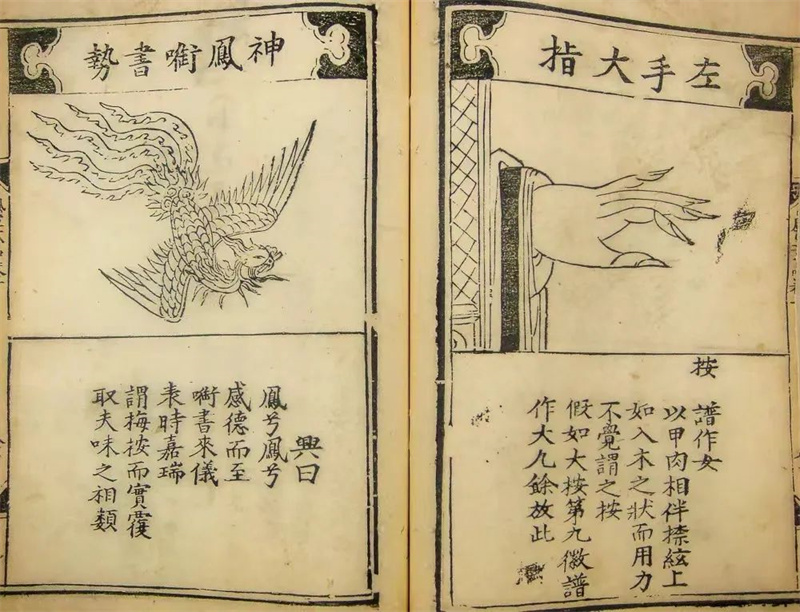 左手大指
按
譜作女
以甲肉相伴捺絃上
如入木之狀而用力
不覺謂之按
假如大按第九徽譜
作大九餘放此
神鳳啣書勢
興曰
鳳兮鳳兮
感德而至
啣書來儀
表時嘉瑞
謂梅按而實覆
取夫味之相類